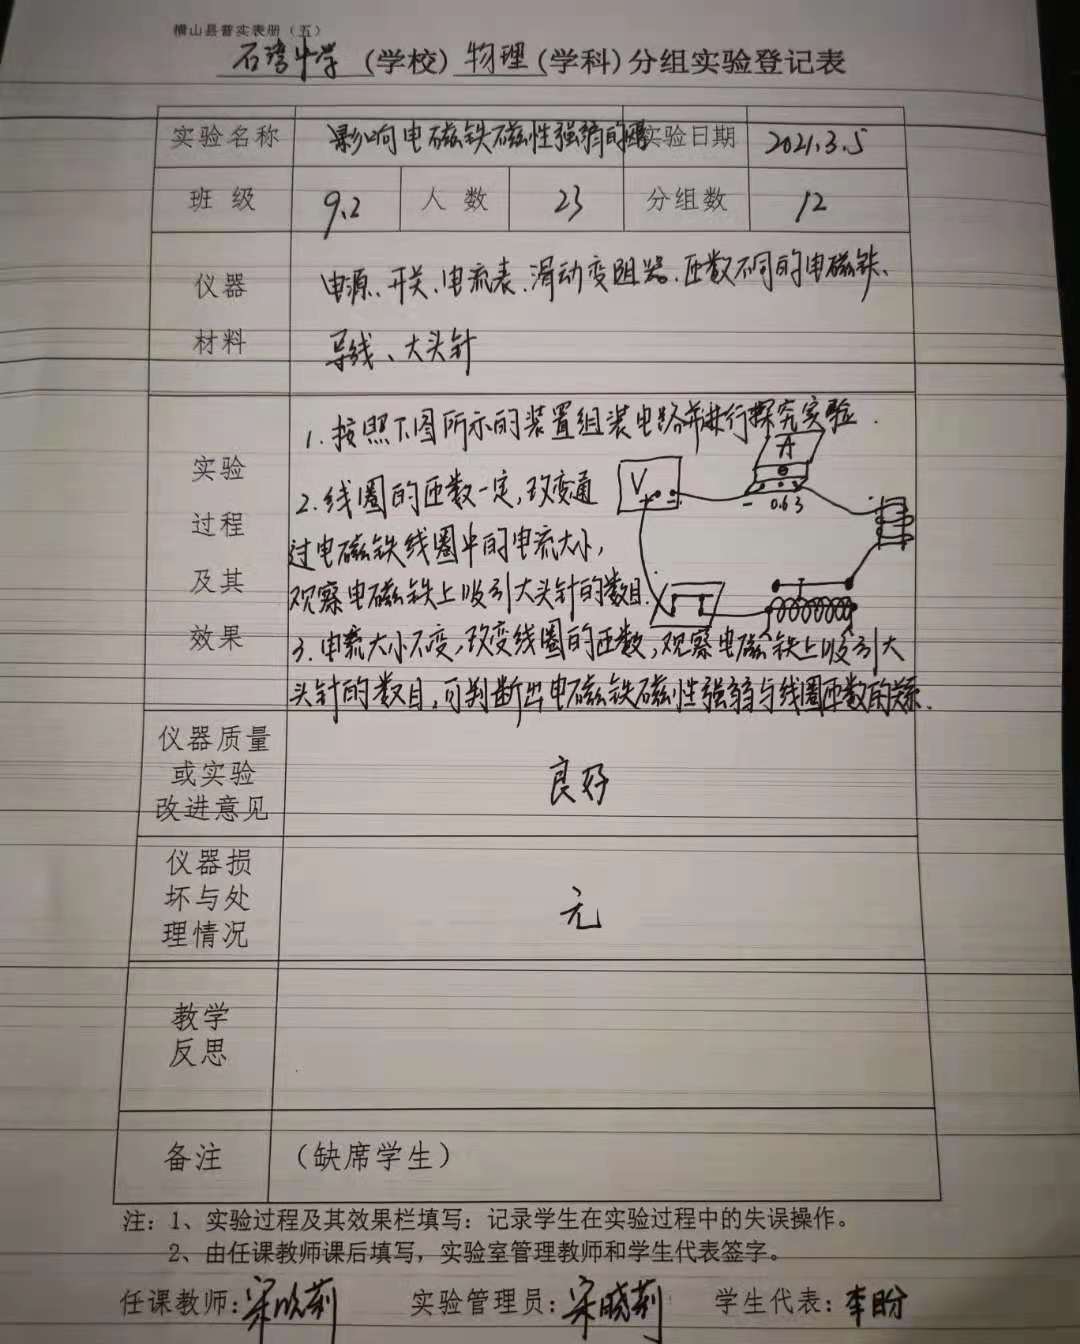 横山县普实表册（五）
石湾中学（学校）物理（学科）分组实验登记表
实验名称 影响电磁铁磁性强弱的因素 实验日期 2021.3.5
班级 9.2 人数 23 分组数 12
仪器 电源、开关、电流表、滑动变阻器、匝数不同的电磁铁、
材料 导线、大头针
1.按照下图所示的装置组装电路并进行探究实验.
实验
过程
及其
效果
2.线圈的匝数一定,改变通
过电磁铁线圈中的电流大小,
观察电磁铁上吸引大头针的数目.
V
A
- 0.6 3
3.电流大小不变,改变线圈的匝数,观察电磁铁上吸引大
头针的数目,可判断出电磁铁磁性强弱与线圈匝数的关系.
仪器质量
或实验
改进意见
良好
仪器损
坏与处
理情况
无
教学
反思
备注 （缺席学生）
注：1、实验过程及其效果栏填写：记录学生在实验过程中的失误操作。
2、由任课教师课后填写，实验室管理教师和学生代表签字。
任课教师: 实验管理员: 宋晓莉 学生代表: 李盼